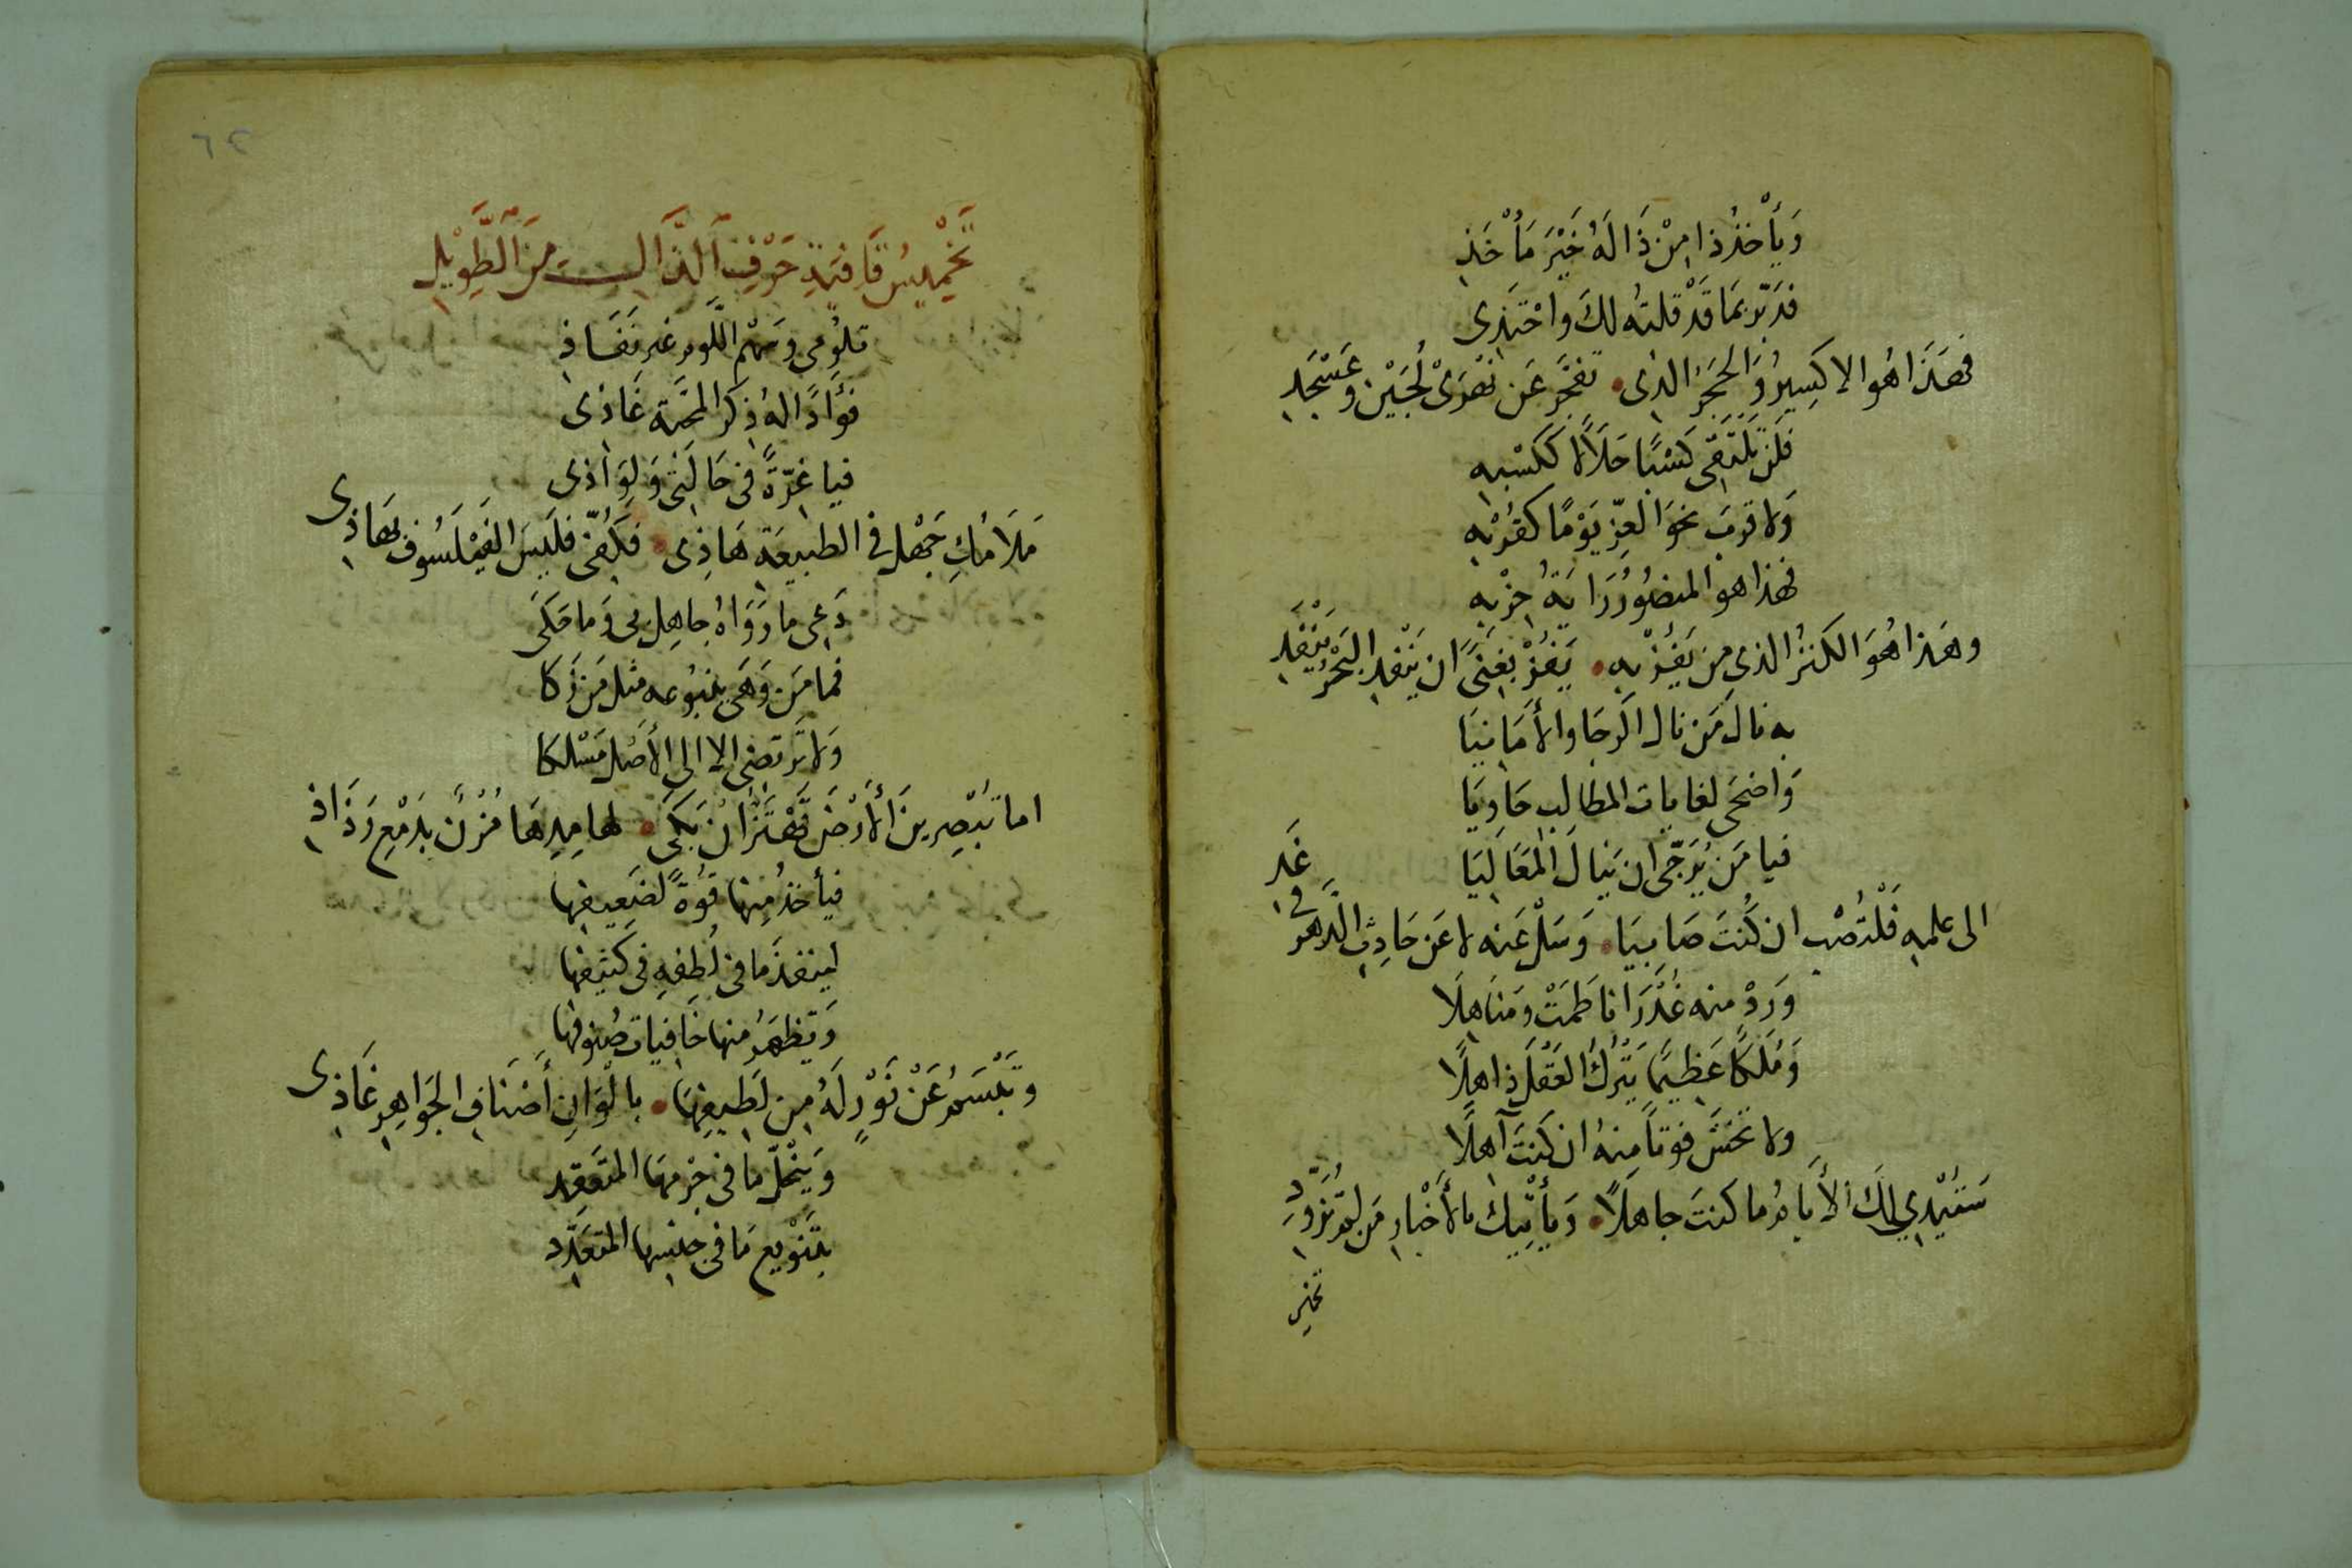 وَيَأْخُذُ ذا مِنْ ذَا لَهُ خَيْرَ مَأْخَذِ
فدبّر بمَا قَدْ قلتُه لكَ واحْتَذِى
فهَذَا هُوا الاكسِيرُ وَالحَجَرُ الذى • تفجَّر عَن نهْرَىْ لُجَيْنٍ وعَسْجَدِ
فَلَن يَلتَقى كَسْبًا حَلَالًا ككَسْبِهِ
وَلا قربَ نحوَ العِزّ يَوْمًا كقُرْبِهِ
فهذا هوَ المنصُورُ رَايَةُ حِزْبِهِ
وهَذا هُوَ الكَنزُ الذى مَن يَفُزْ بِهِ • يَفُزْ بِغِنىً ان يَنْفدِ البَحْرُ يَنْفَدِ
بِهِ نالَ مَن نال الرَجَا والأمَانيَا
وَاضحَى لغايات المطَالِب حَاويَا
فيا مَن يُرَجّى ان يَنالَ المَعَاليَا
الى علمِهِ فَلْتَصْبُ ان كُنتَ صَابيَا • وَسَلْ عَنه لا عَن حَادِثِ الدَهرِ فى غَدِ
وَرِدْ منه غُدْرَانا طَمَتْ ومَنَاهِلَا
وَمُلكًا عَظِيمًا يَتْرُكُ العَقْلَ ذاهِلًا
ولا تخشَ فوتاً مِنهُ ان كنتَ آهِلًا
سَتُبْدِي لكَ الأيامُ ما كنتَ جاهلًا • وَيَأْتيك بالأَخْبارِ مَن لم تُزَوِّدِ
تخمي
٦٢
تَخْمِيسُ قَافِيَةِ حَرْفِ الذَّالِ مِنَ الطَّوِيْلِ
تلُومى وسَهْم اللَّوم غير نَفَّاذِ
فؤَادًا لهُ ذِكرُ المحَبَّة غَاذى
فيا غِرّةً فى حَالَتى وَلِوَاذى
مَلَامُكِ جَهْل فى الطبيعَة هَاذِى • فكُفّى فليسَ الفَيْلَسُوف بهَاذِى
دَعِى ما رَوَاهُ جاهِل بى وَما حَكَى
فما مَن وَهَى ينبُوعه مثل مَن زَكَا
وَلا تَرتضى الا الى الأصْل مَسْلكا
اما تُبْصِرينَ الأرْضَ تَهْتَزُّ ان بَكَى • لهامِدِهَا مُزْنٌ بدَمْعِ رَذَاذِ
فيأخذُ مِنها قُوّةً لضَعِيفِها
لينفذَ مَا فى لُطفِهِ فى كثيفها
وَتظهَرُ منها خَافياتُ صُنوفها
وتَبْسَمُ عَنْ نَوْرٍ لَهُ مِن لَطيفِهَا • بالْوَانِ أَصْنَافِ الجَوَاهِرِ غَاذِى
وَيَنْحَلّ ما فى جِرْمهَا المتَعَقِّدِ
بتَنْوِيعِ مَا فى جنسِها المتعَدِّدِ